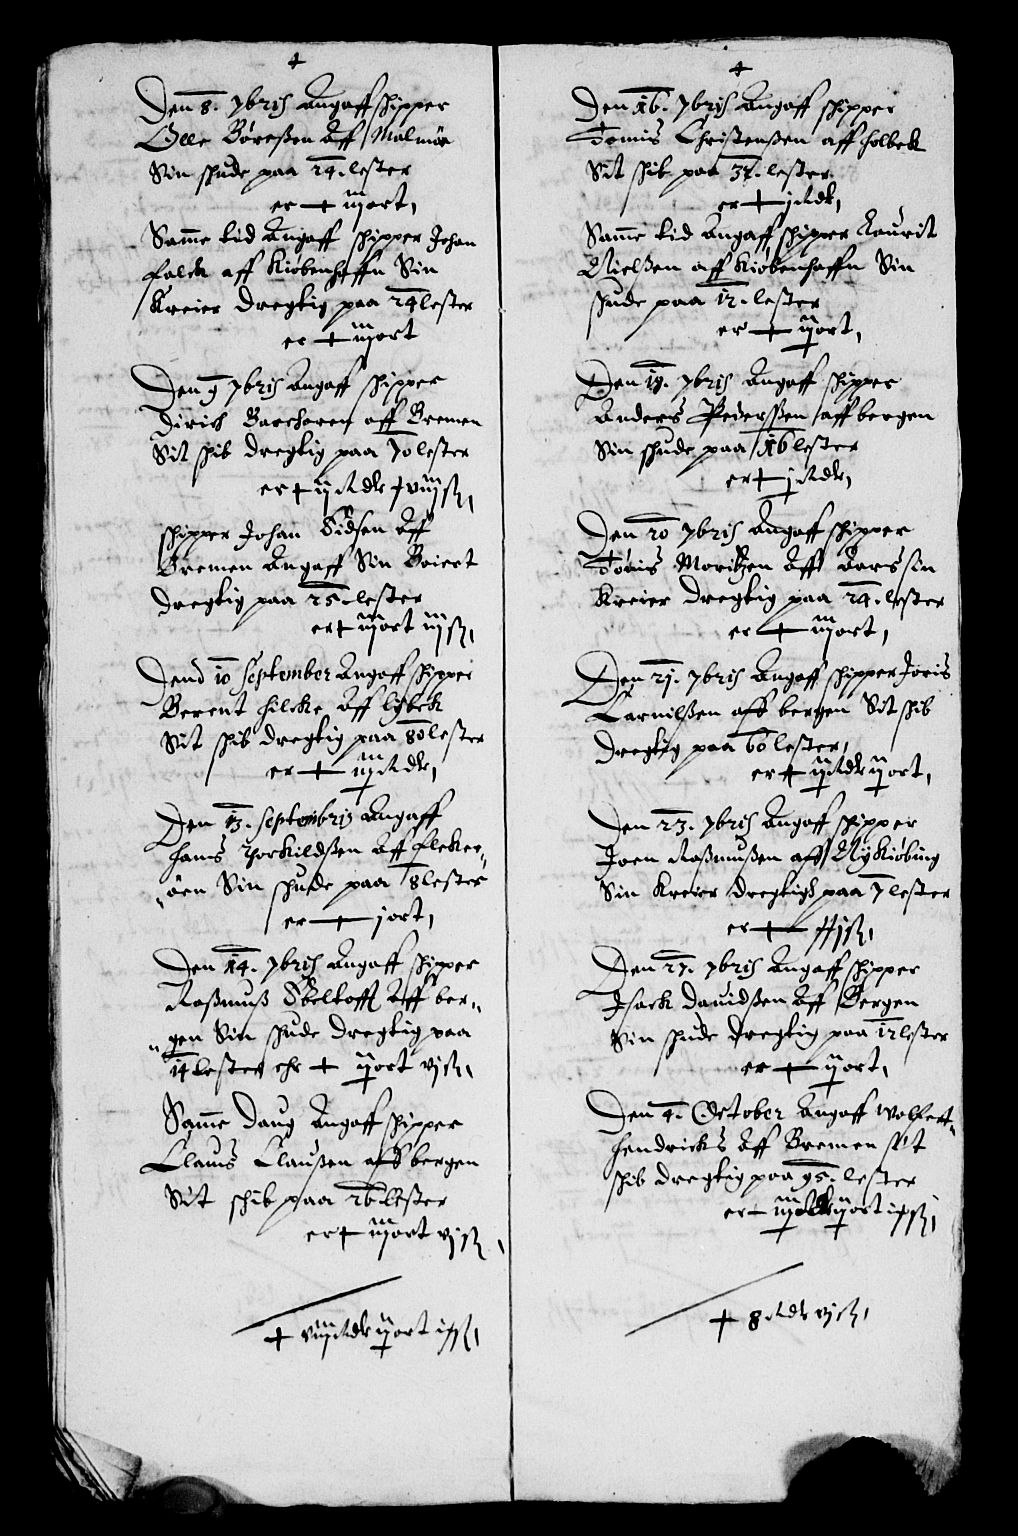 Den 8. 7bris Angaff skipper
Olle Børeßen Aff Malmøe
Sin skude paa 24. lester
er + iijort,
Samme tid Angaff skipper Johan
Falck aff Kiøbenhaffn Sin
Kreier dregtig paa 24 lester
er + iijort
Den 9 7bris Angaff skipper
Dirich aff Bremen
Sit skib dregtig paa 70 lester
er + ij Rdlr
skipper Johan Aff
Bremen Angaff Sin Boiert
dregtig paa 25. lester
er + iijort iijß,
Dend 10 September Angaff skipper
Berent Hilcke Aff lybek
Sit skib dregtig paa 80 lester
er + Rdlr,
Den 13. Septembris Angaff
Hans Torkildßen Aff Flecker-
øen Sin skude paa 8 lester
er + jort,
Den 14. 7bris Angaff skipper
Raßmuß Aff ber-
gen Sin skude dregtig paa
14 lester ehr + ort vjß,
Samme Daug Angaff skipper
Claus Claußen aff bergen
Sit skib paa 26. lester
er + iijort vjß
+ Rdlr ort
Den 16. 7bris Angaff skipper
Tomis Christenßen aff holbek
Sit skib paa lester
er + j Rdlr,
Samme tid Angaff skipper Laurit
Nielßen aff Kiøbenhaffn Sin
skude paa 12. lester
er + ort,
Den 19. 7bris Angaff skipper
Anders Pederßen aff bergen
Sin skude paa 16 lester
er + j Rdlr,
Den 20 7bris Angaff skipper
Tønis Moritzen Aff sin
Kreier dregtig paa 24. lester
er + iijort,
Den 21. 7bris Angaff skipper Joris
Carnilßen aff bergen Sit skib
dregtig paa 60 lester,
er + Rdlr ort,
Den 23. 7bris Angaff skipper
Joen Raßmußen aff Nykiøbing
Sin Kreier dregtig paa 7 lester
er +
Den 27. 7bris Angaff skipper
Isack Davidßen Aff Bergen
Sin skude dregtig paa 12 lester
er + ort,
Den 4. October Angaff Wolfert
Hendricks Aff Bremen sit
skib dregtig paa 95. lester
er ort
+ 8 Rdlr vjß,